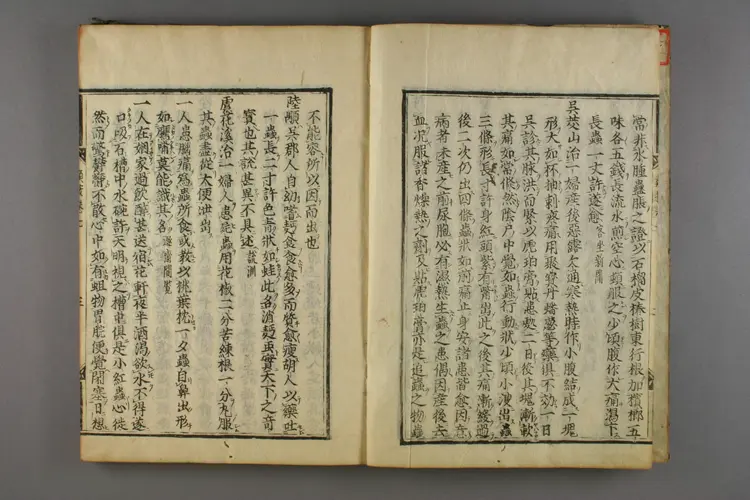 當非水腫蟲脹之證以石榴皮椿樹東行根加檳榔五
味各五錢長流水煎空心頓服之少頃腹作大痛瀉下
長蟲一丈許遂愈 客坐新聞
吳茭山治一婦產後惡露大通寒熱時作小腹結成一塊
形大如杯抽刺疼痛用聚寶丹蟠葱等藥俱不効一日
吳診其脉洪而緊以琥珀膏貼患處二日後其塊漸軟
其痛如常倐然陰戶中覺如蟲行動狀少頃小溲出蟲
三條形長寸許身紅頭紫有嘴出此之後其痛漸緩過
後二次仍出四條蟲狀如前痛止身安諸患皆愈因音
痛者未產之前尿胞必有濕熱生蟲之患偶因產後去
血況服諸香燥熱之劑及貼琥珀膏亦是追蟲之物蟲
不能容所以因而出也
陸顒吳郡人自幼嗜麪食食愈多而質愈瘦胡人以藥吐
一蟲長二寸許色青狀如蛙此名消麪虫實天下之奇
寶也其說甚異不具述 說淵
盧花池治一婦人患寸白蟲用花椒二分苦練根一分丸服
其蟲盡從大便泄出
一人患腦痛為蟲所食或教以桃葉枕一夕蟲自鼻出形
如鷹嘴莫能識其名
一人在姻家過飲醉甚送宿花軒夜半酒渴欲水不得遂
口吸石槽中水碗許天明視之槽中俱是小紅蟲心徒
然而驚鬱鬱不散心中如有蛆物胃脘便覺閉塞日想